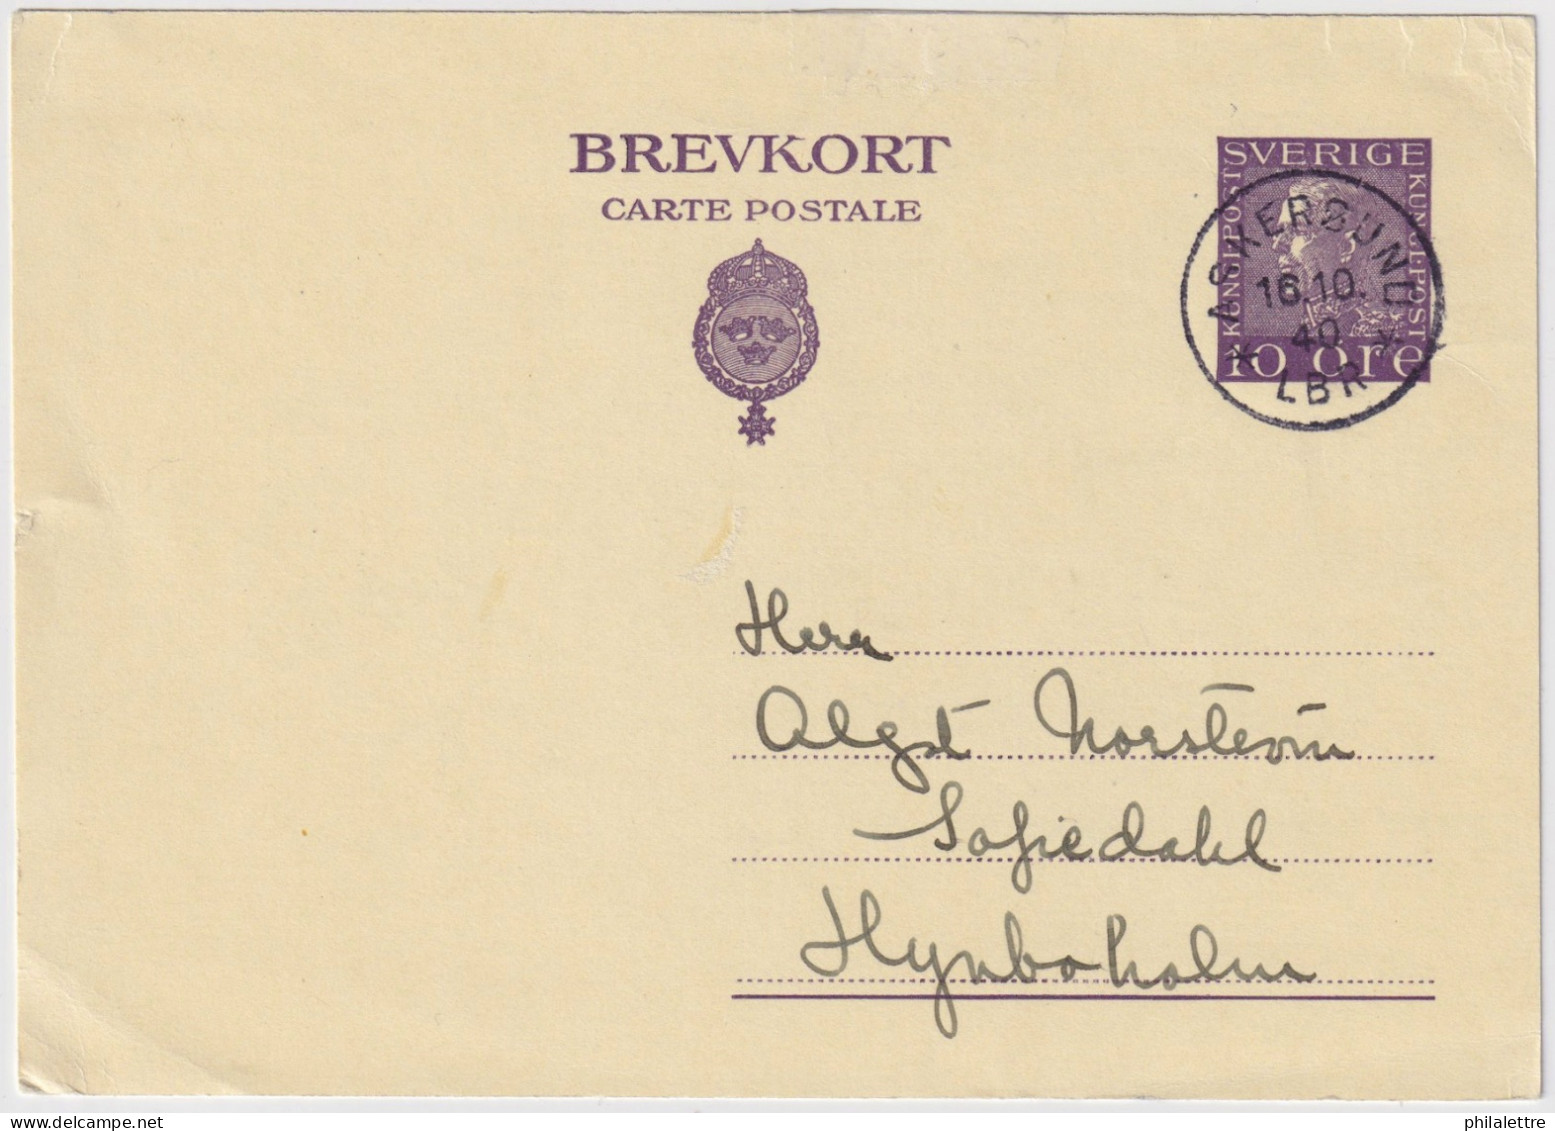 BREVKORT
CARTE POSTALE
SVERIGE
KUNGL·POST
KUNGL·POST
10 ÖRE
ASKERSUND
16.10.
40
* LBR *
Herr
Algot Norström
Sofiedahl
Hynboholm
philalettre